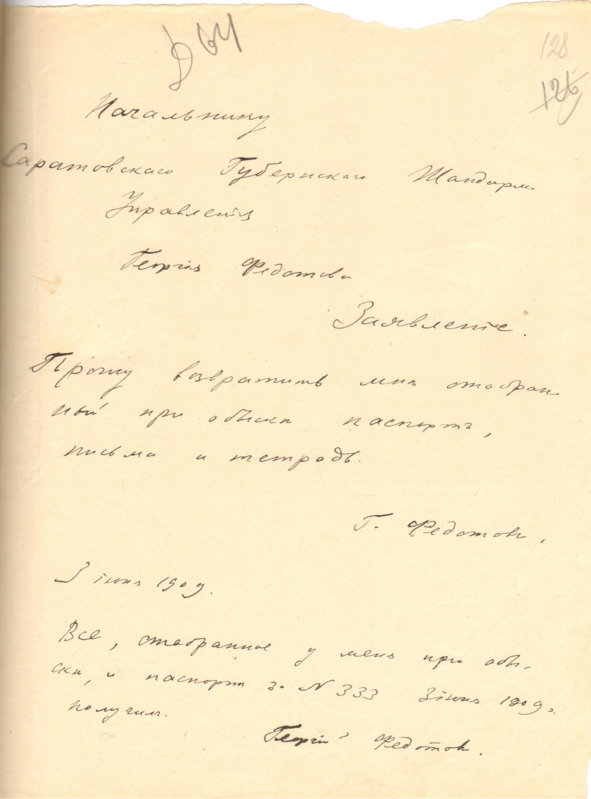 д 64
128
126
Начальнику
Саратовскаго Губернскаго Жандарм.
Управленія
Георгія Федотова
Заявленіе.
Прошу возвратить мнѣ отобран
ный при обыскѣ паспортъ,
письма и тетрадь.
Г. Федотовъ.
3 іюня 1909.
Все, отобранное у меня при обы-
скѣ, и паспортъ за N 333 3 іюня 1909 г.
получилъ.
Георгій Федотов.